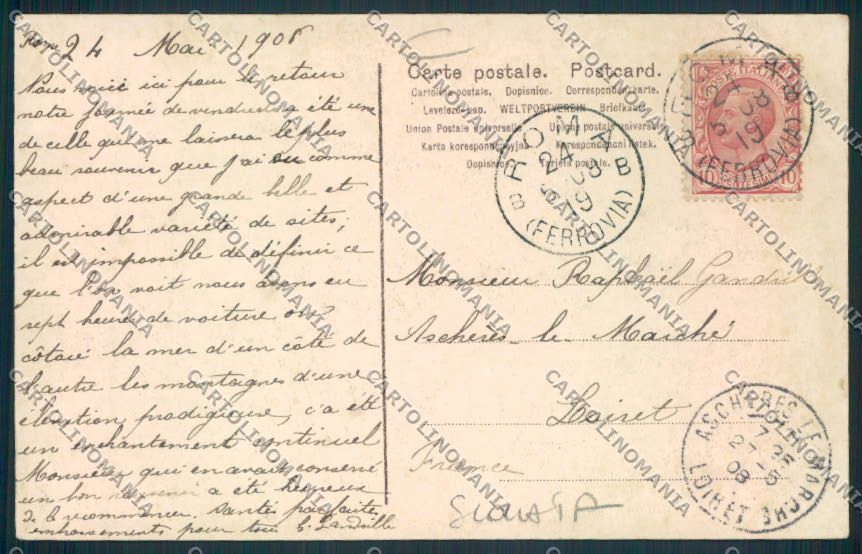 24 Mai 1908
Nous voici ici pour le retour
notre journée de vendredi a été une
de celle qui me laissera le plus
beau souvenir que j'ai eu comme
aspect d'une grande belle et
admirable variété de sites,
il est impossible de définir ce
que l'on voit nous avons eu
sept heures de voiture
côtoié la mer d'un côté de
l'autre les montagnes d'une
élévation prodigieuse, ç'a été
un enchantement continuel
Monsieur qui en avait conservé
un bon souvenir a été heureux
de le recommencer. Santés parfaites
embrassements pour tous
Carte postale. Postcard.
Cartolina postale. Dopisnice. Correspondenzkarte.
WELTPOSTVEREIN Briefkaart
Union Postale universelle Unione postale universale
Karta korespondencyjna Korespondencni listek.
Dopisnica. Tarjeta postale.
POSTE ITALIANE
10 CENTESIMI 10
ROMA
24 5 08 19
(FERROVIA)
ROMA
24 5 08 19
(FERROVIA)
Monsieur Raphaël
Aschères-le-Marché
Loiret
France
ASCHERES LE MARCHE
7 35
27 5
08
LOIRET
CARTOLINOMANIA